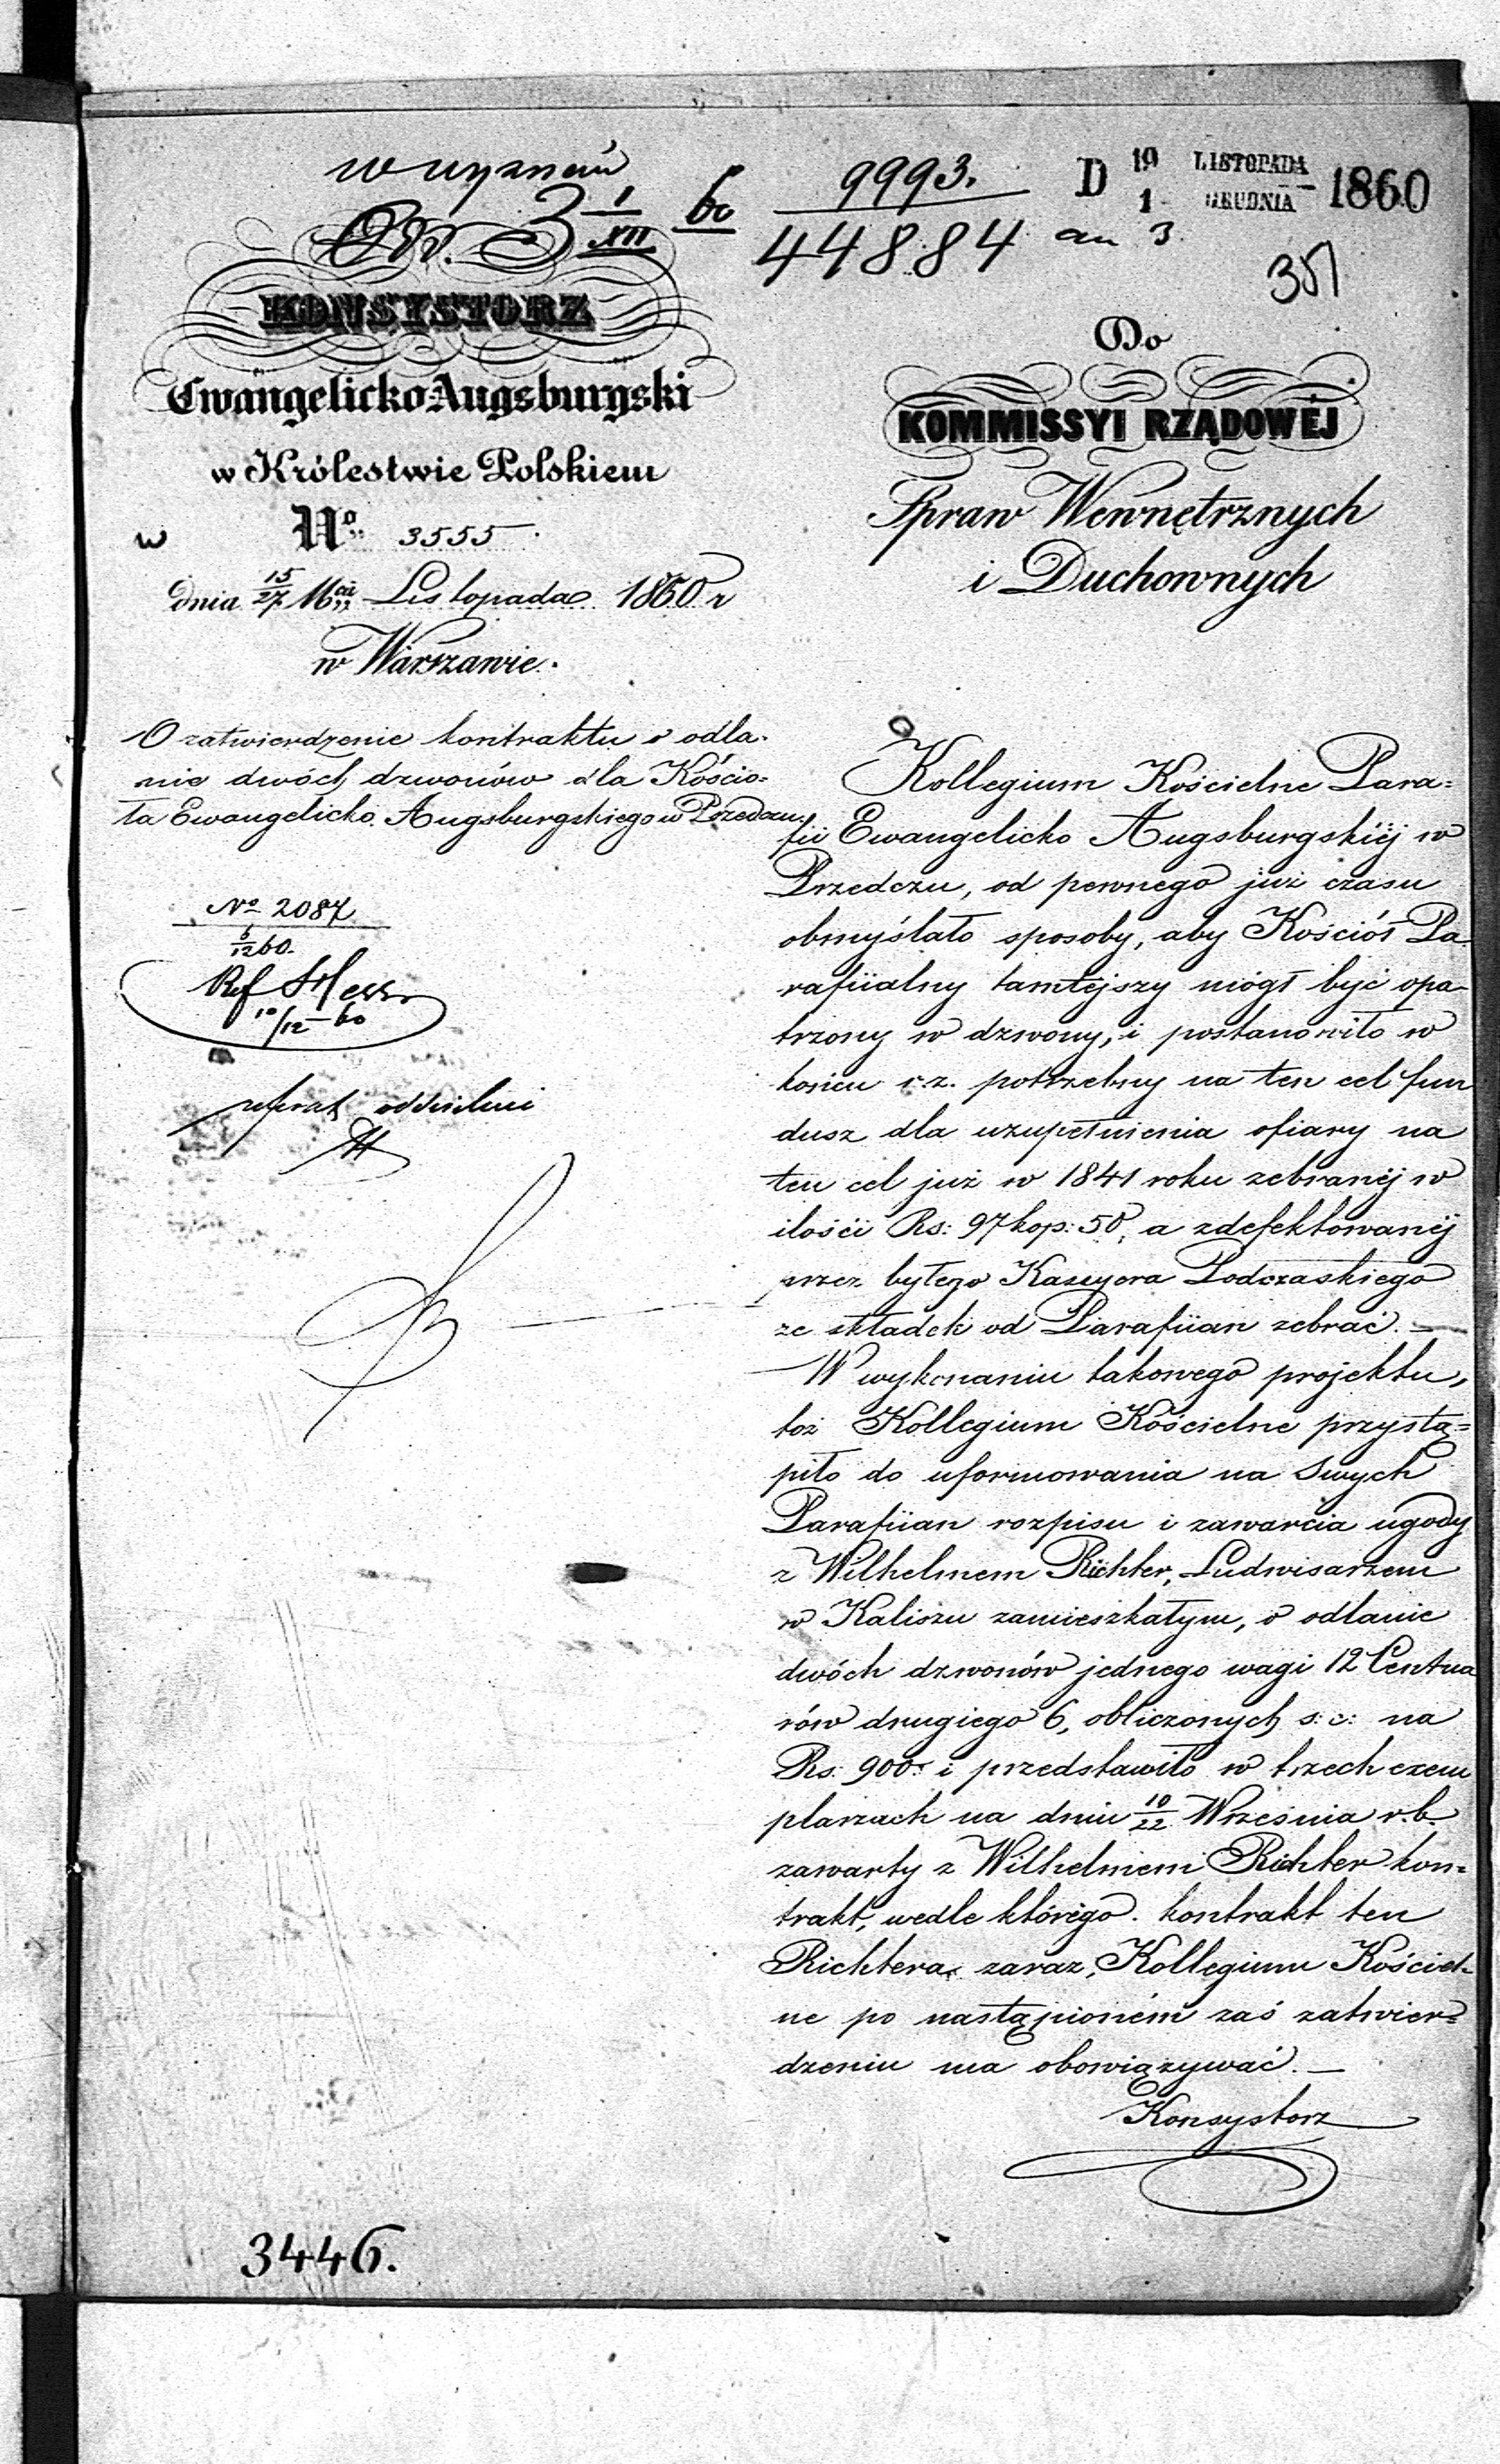 w wyznań
9993.
44884
D 19 LISTOPADA
1 GRUDNIA 1860
an 3
1/XII 60
351
KONSYSTORZ
Ewangelicko-Augsburgski
w Królestwie Polskiem
w No 3555.
dnia 15/27 Mca Listopada 1860 r
w Warszawie.
O zatwierdzenie kontraktu o odla-
nie dwóch dzwonów dla Kościo=
ła Ewangelicko. Augsburgskiego w Przedczu.
No 2087
6/12 60.
Ref Hess
10/12 60
referat oddzielni
Do
KOMMISSYI RZĄDOWÉJ
Spraw Wewnętrznych
i Duchownych
Kollegium Kościelne Para=
fii Ewangelicko Augsburgskiéj w
Przedczu, od pewnego już czasu
obmyślało sposoby, aby Kościół Pa
rafiialny tamtejszy mógł być opa-
trzony w dzwony, i postanowiło w
końcu r.z. potrzebny na ten cel fun
dusz dla uzupełnienia ofiary na
ten cel już w 1841 roku zebranéj w
ilości Rs: 97 kop: 50, a zdefektowanéj
przez byłego Kassyera Podczaskiego
ze składek od Parafiian zebrać. —
W wykonaniu takowego projektu,
toż Kollegium Kościelne przystą=
piło do uformowania na Swych
Parafiian rozpisu i zawarcia ugody
z Wilhelmem Richter, Ludwisarzem
w Kaliszu zamieszkałym, o odlanie
dwóch dzwonów jednego wagi 12 Centna
rów drugiego 6, obliczonych s: c: na
Rs: 900. i przedstawiło w trzech exem
plarzach na dniu 10/22 Września r.b.
zawarty z Wilhelmem Richter kon=
trakt, wedle którego. kontrakt ten
Richtera zaraz, Kollegium Kościel-
ne po nastąpioném zaś zatwier=
dzeniu ma obowiązywać. —
Konsystorz
3446.